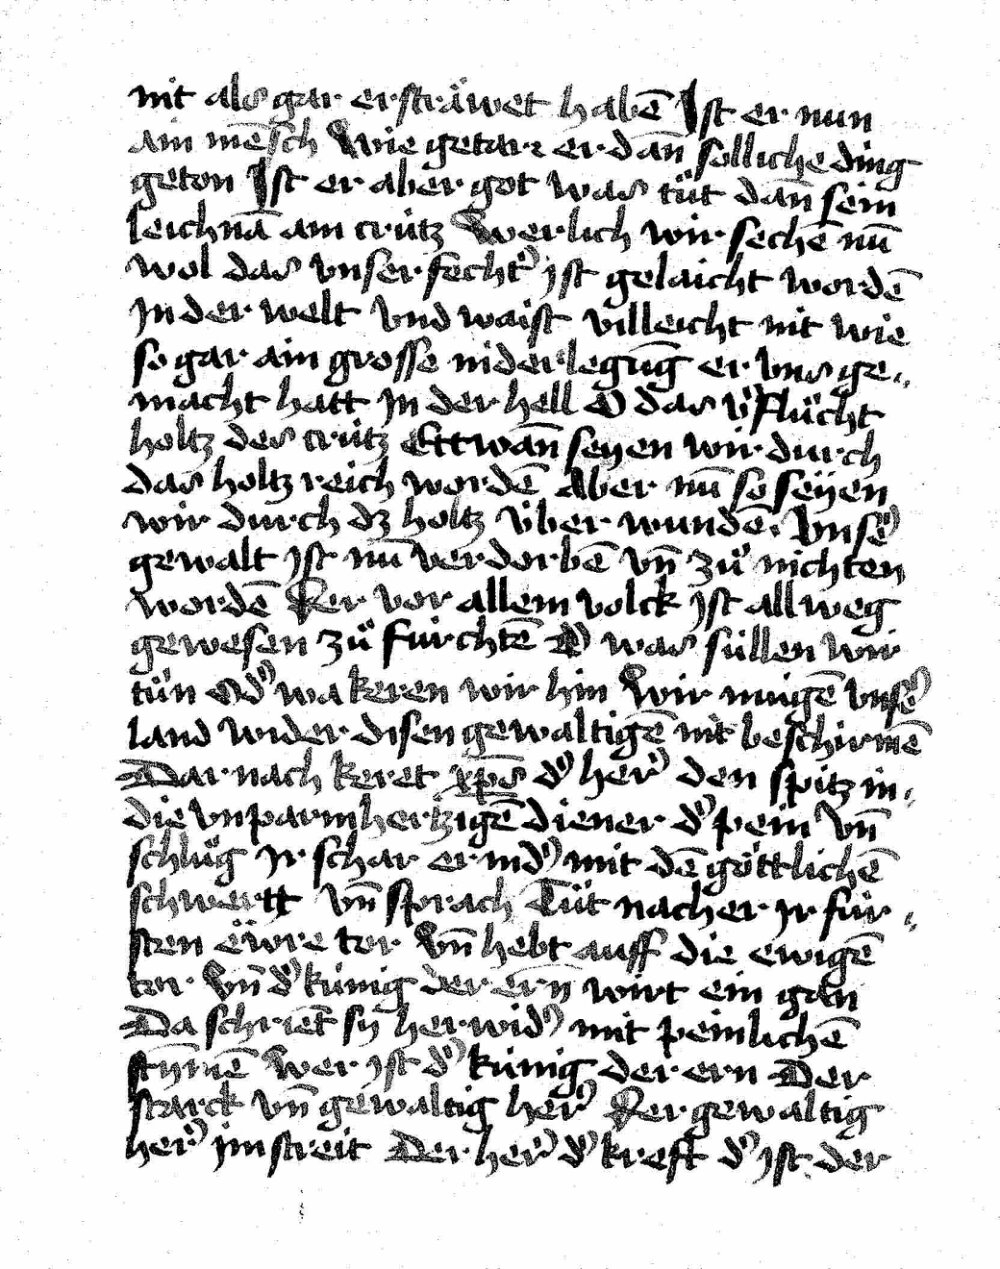 nit als gar ersträwet habē Ist er nun
ain mēsch Wie getarr er dañ solliche ding
geton Ist er aber got was tüt dañ sein
leichnā am crütz Werlich wir sechē nū
wol das vnser fecht' ist gelaicht wordē
In der welt vnd waist villeicht nit wie
so gar ain grosse niderlegūg er vns ge„
macht hatt In der hell O das v'flücht
holtz des crütz Ettwañ seyen wir durch
das holtz reich wordē Aber nū so seÿen
wir durch dz holtz v̈ber wundē. Vnse'
gewalt ist nū verdorbē vn̄ zů nichten
wordē Der vor allem volck ist allweg
gewesen zů fürchtē O was süllen wir
tün Od' wa keren wir hin Wir mügē vnse'
land wider disen gewaltigē nit beschirmē
Dar nach keret xp̄s d' her' den spitz in„
die vnparmhertzigē diener d' pein Vn̄
schlůg Ir schar er nid' mit dē göttlichē
schwertt vn̄ sprach Tüt nacher Ir für„
sten ëwre tor Vn̄ hebt auff die ewigē
tor Vn̄ d' künig der ern̄ wirt ein gan
Da schriet̄ sy her wid' mit peinlichē
stȳmē Wer ist d' künig der ern Der
starck vn̄ gewaltig her' Der gewaltig
her' im streit Der her' d' kreft d' ist der